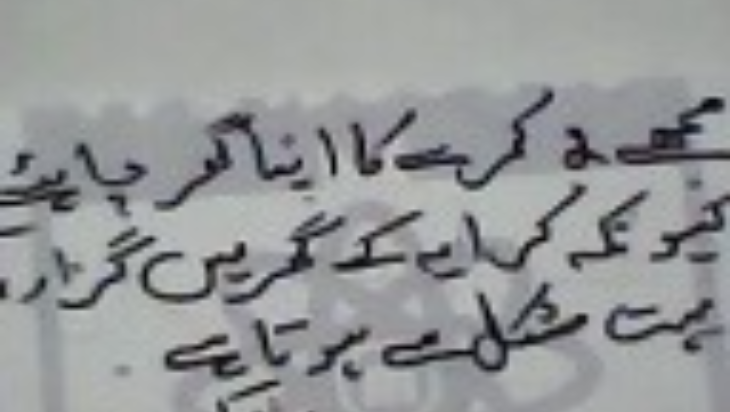 مجھے 2 کمرے کا اپنا گھر چاہیئے
کیونکہ کرایہ کے گھر میں گزارہ
بہت مشکل سے ہوتا ہے